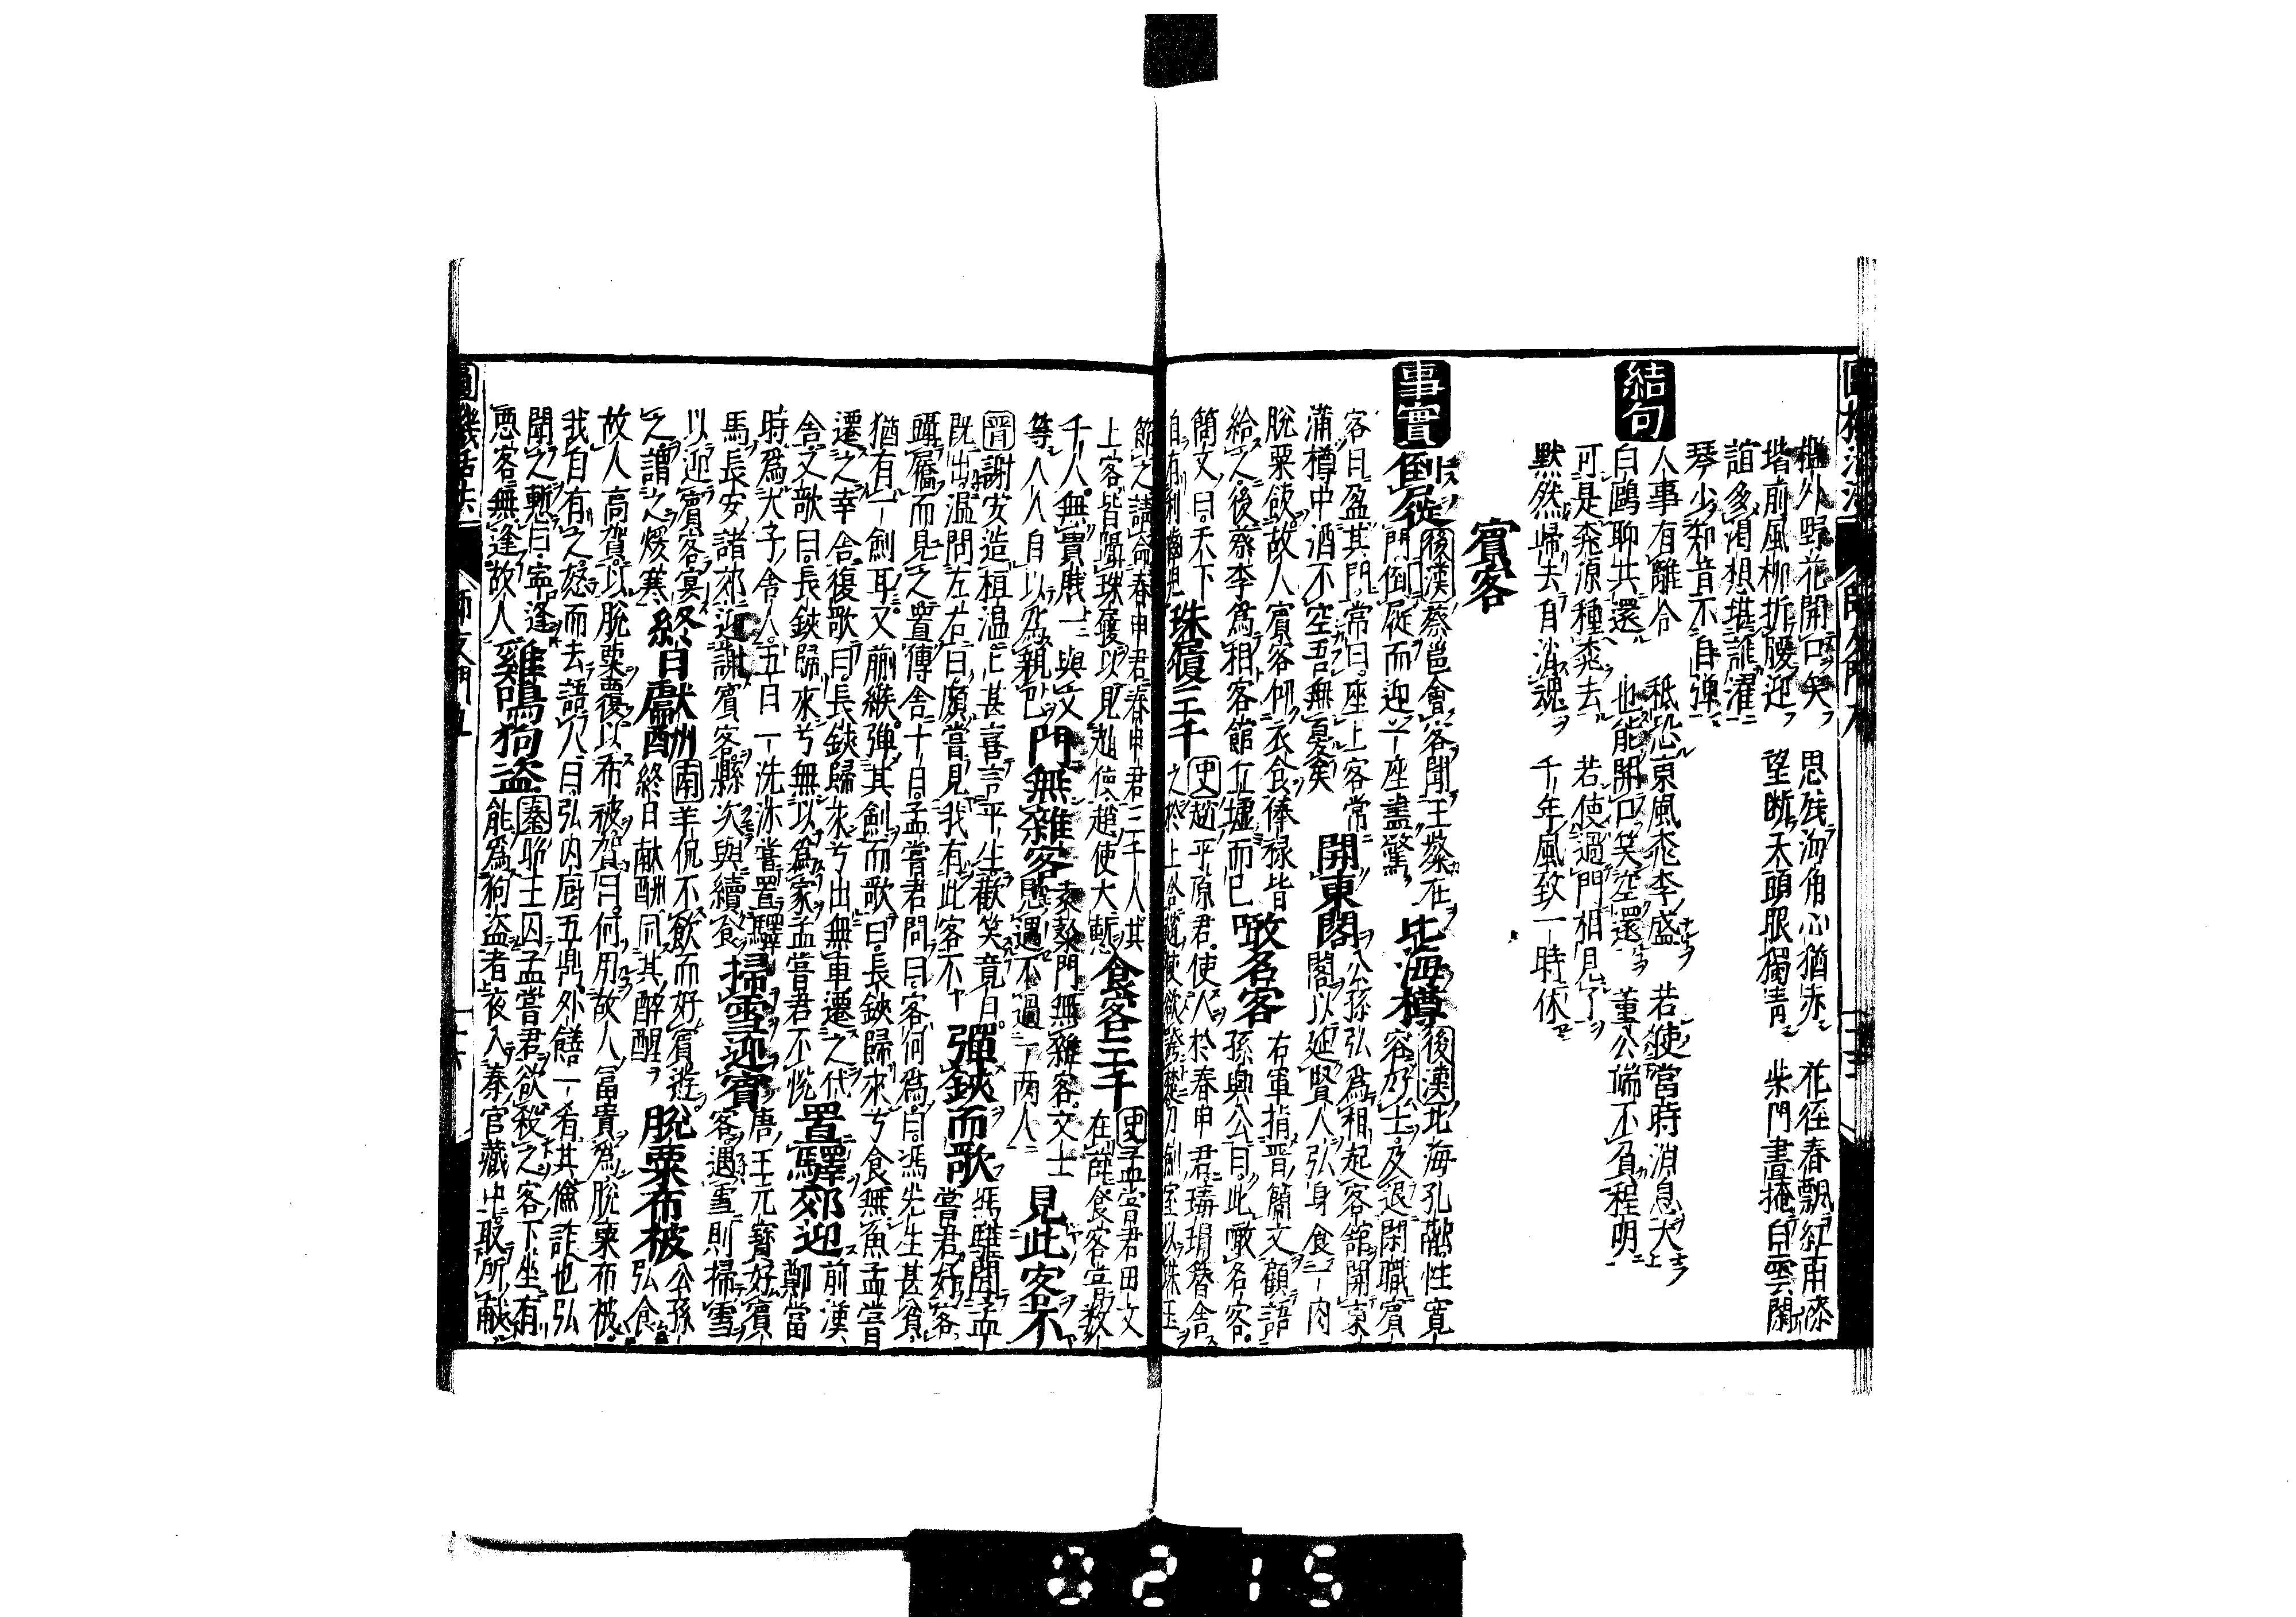 檻外野花開口笑 思殘海角心猶赤 花徑春飄紅雨漆
堦前風柳折腰迎 望斷天頭眼獨青 柴門晝掩白雲関
誼多渇想堪誰濯
琴少知音不自弾
結句
人事有離合 秪恐東風桃李盛 若使當時消息大
白鷗聊共還 也能開口笑空還 董公端不負程明
可是桃源種桃去 若使過門相見了
默然歸去自消魂 千年風致一時休
賓客
事實 倒屣 後漢 蔡邕會客聞王粲在
門倒屣而迎之一座盡驚 北海樽 後漢 北海孔融性寬
容好士及退閑職賓
客日盈其門常曰座上客常
滿樽中酒不空吾無憂矣 開東閤 公孫弘爲相起客舘開東
閤以延賢人弘身食一肉
脱粟飯故人賓客仰衣食俸禄皆
給之後蔡李爲相客館丘墟而已 噉名客 右軍指晋簡文顧語
孫興公曰此噉名客
簡文曰天下
自有利齒兒 珠履三千 史 趙平原君使人於春申君瑇瑁簪舍
之於上舍趙使欲夸楚刀劍室以珠玉
飾之請命春申君春申君三千人其
上客皆躡珠履以見趙使趙使大慙 食客三千 史 孟嘗君田文
在薛食客常數
千人無貴賤一與文
等人人自以爲親己 門無雜客 袁粲門無雜客文士
見遇不過一兩人 見此客不
晋 謝安造桓温温甚喜言平生歡笑竟日
既出温問左右曰頗嘗見我有此客不 彈鋏而歌 馮驩聞孟
嘗君好客
躡屩而見之置傳舎十日孟嘗君問曰客何爲曰馮先生甚貧
猶有一劍耳又蒯緱彈其劍而歌曰長鋏歸來兮食無魚孟嘗
遷之幸舎復歌曰長鋏歸來兮出無車遷之代
舎又歌曰長鋏歸來兮無以爲家孟嘗君不悅 置驛郊迎 前漢
鄭當
時爲太子舎人五日一洗沐嘗置驛
馬長安諸郊迎謝賓客縣次與續食 掃雪迎賓 唐王元寳好賓
客遇雪則掃雪
以迎賓客宴
之謂之煖寒 終日獻酬 南 羊侃不飲而好賓遊
終日献酬同其醉醒 脱粟布被 公孫
弘食
故人高賀以脱粟覆以布被賀曰何用故人冨貴爲脱粟布被
我自有之怒而去語人曰弘内厨五鼎外饍一肴其儉詐也弘
聞之慙曰寧逢
悪客無逢故人 雞鳴狗盗 秦 昭王囚孟嘗君欲殺之客下坐有
能爲狗盗者夜入秦官藏中取所献